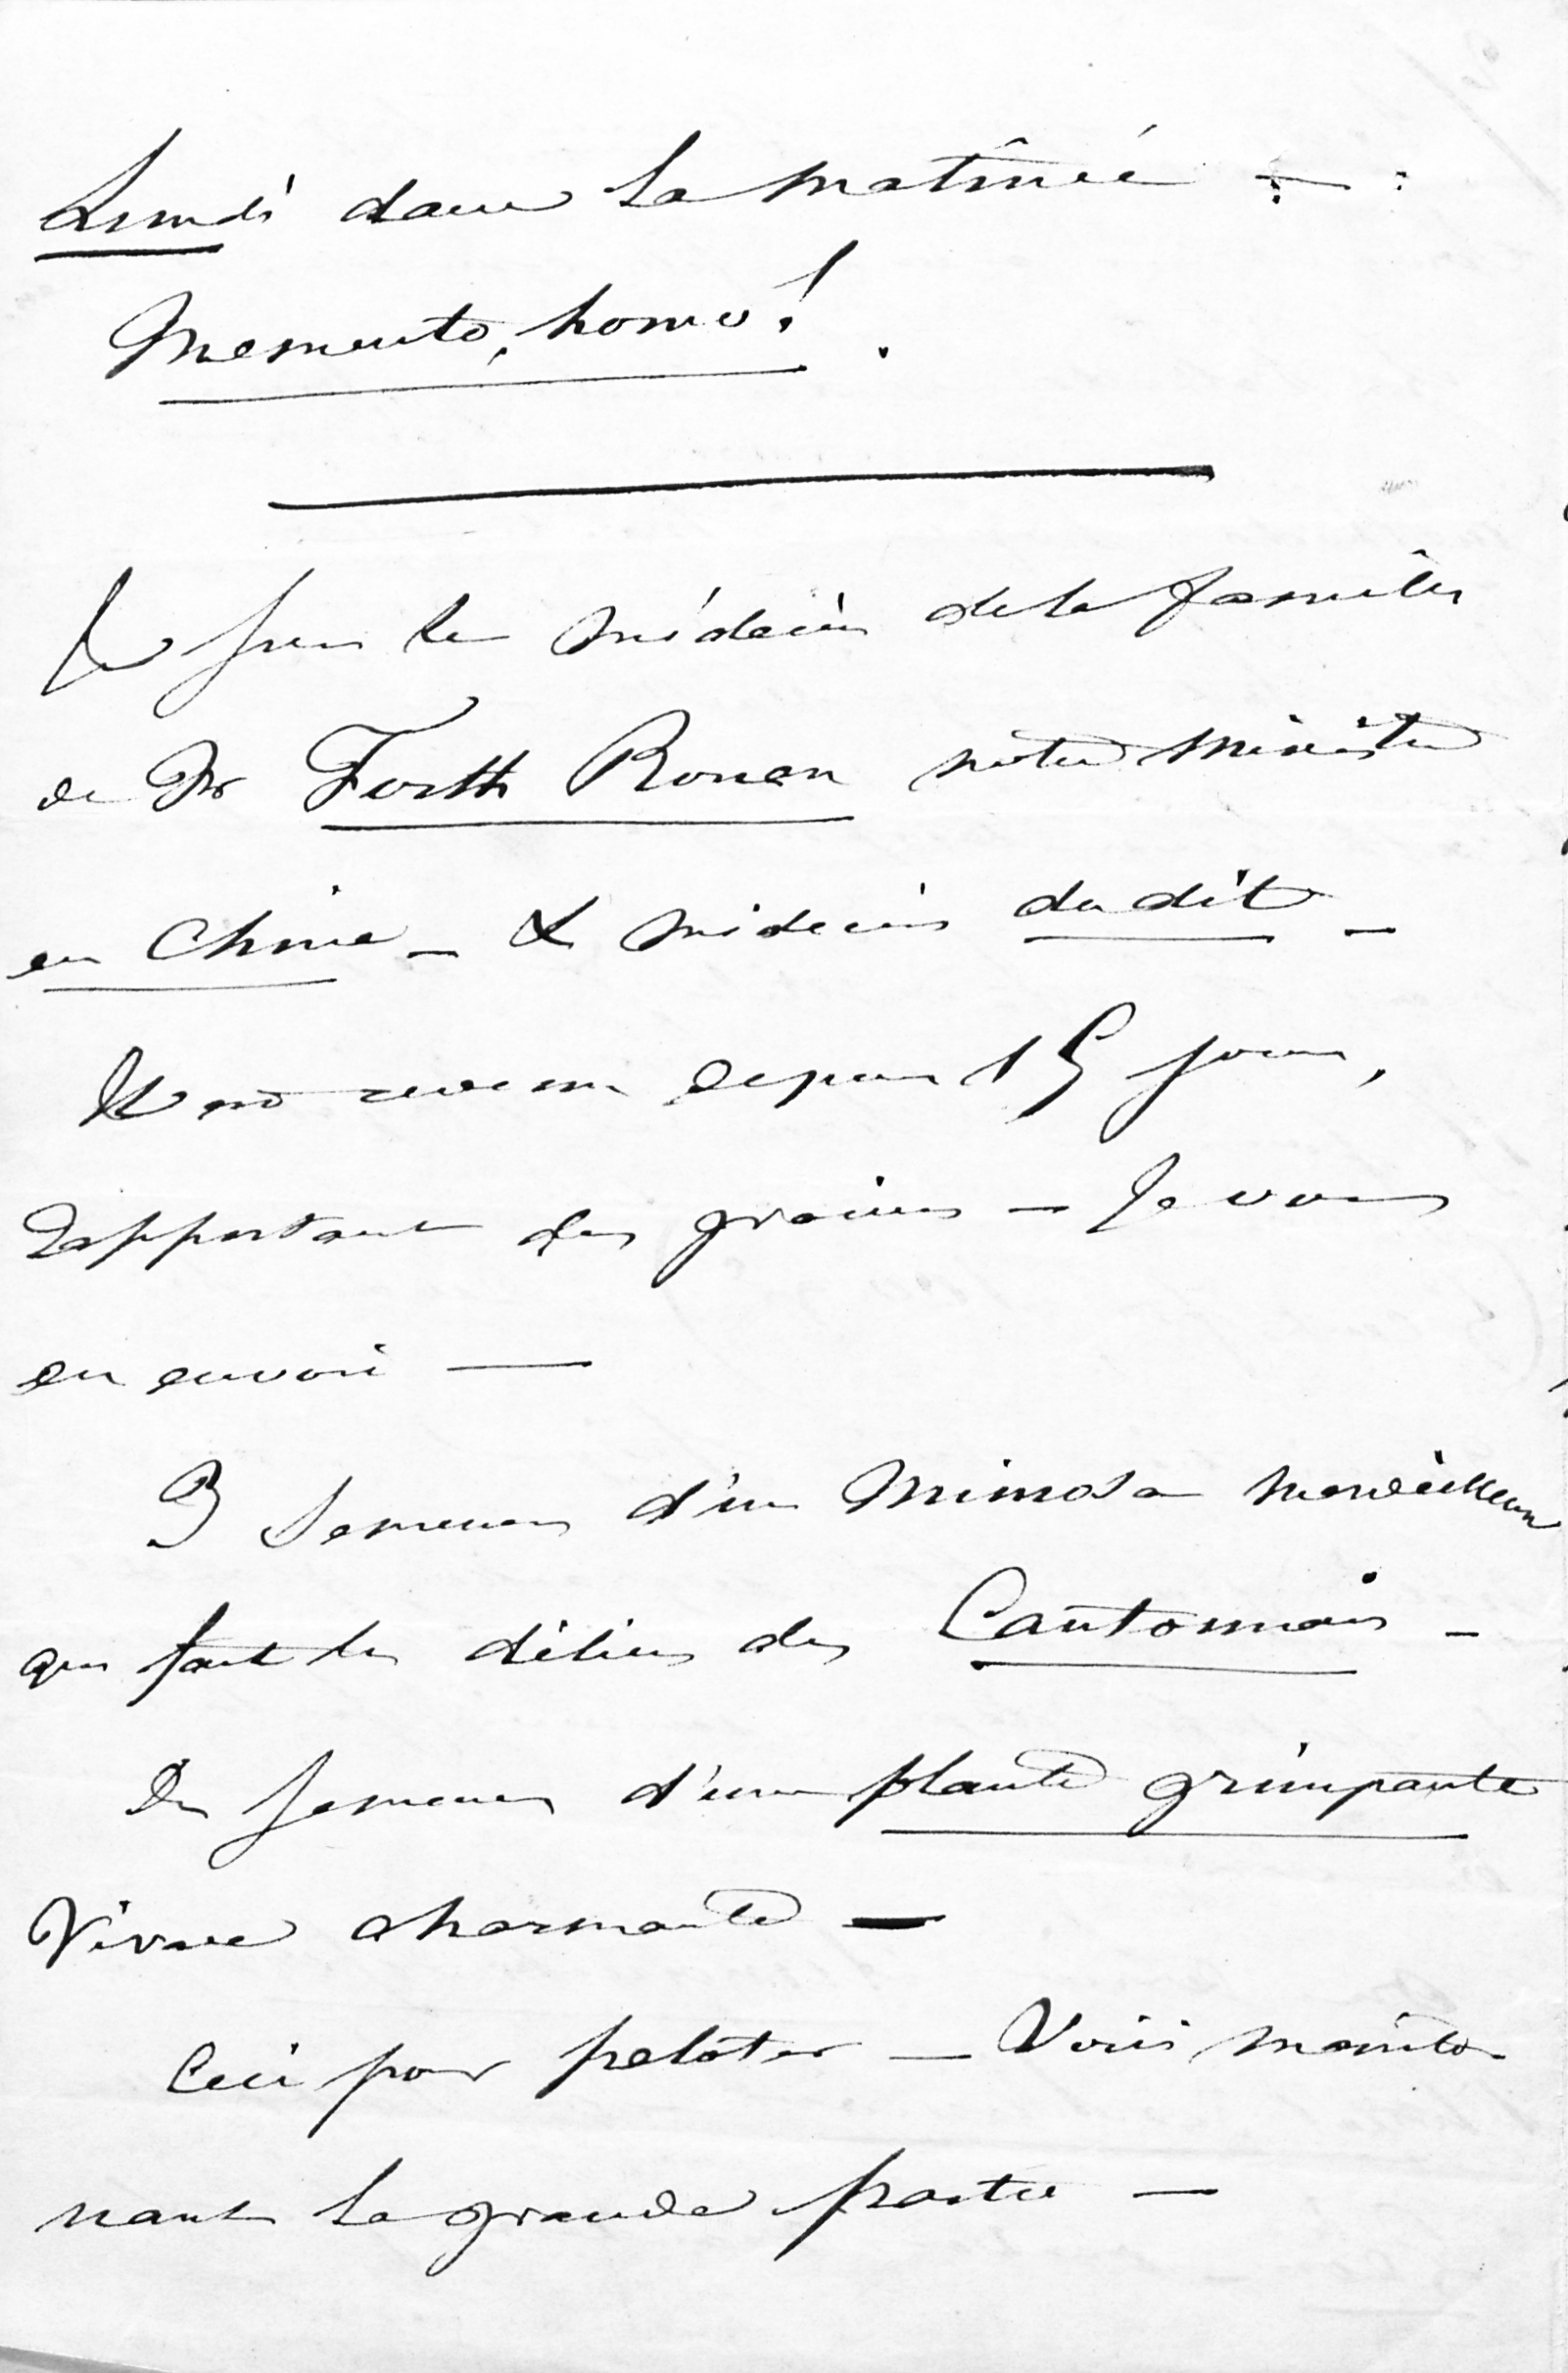 Lundi dans la matinée — :
Memento, homo !.
Je suis le médecin de la famille
de Mr Forth Rouen notre ministre
en Chine — & médecin du dit —
Il est revenu depuis 15 jours,
rapportant des graines — Je vous
en envoie —
3 semences d'un Mimosa merveilleux
qui fait les délices des Cantonnais —
Des semences d'une plante grimpante
Vivace charmante —
Ceci pour peloter — Voici mainte-
nant la grande partie —